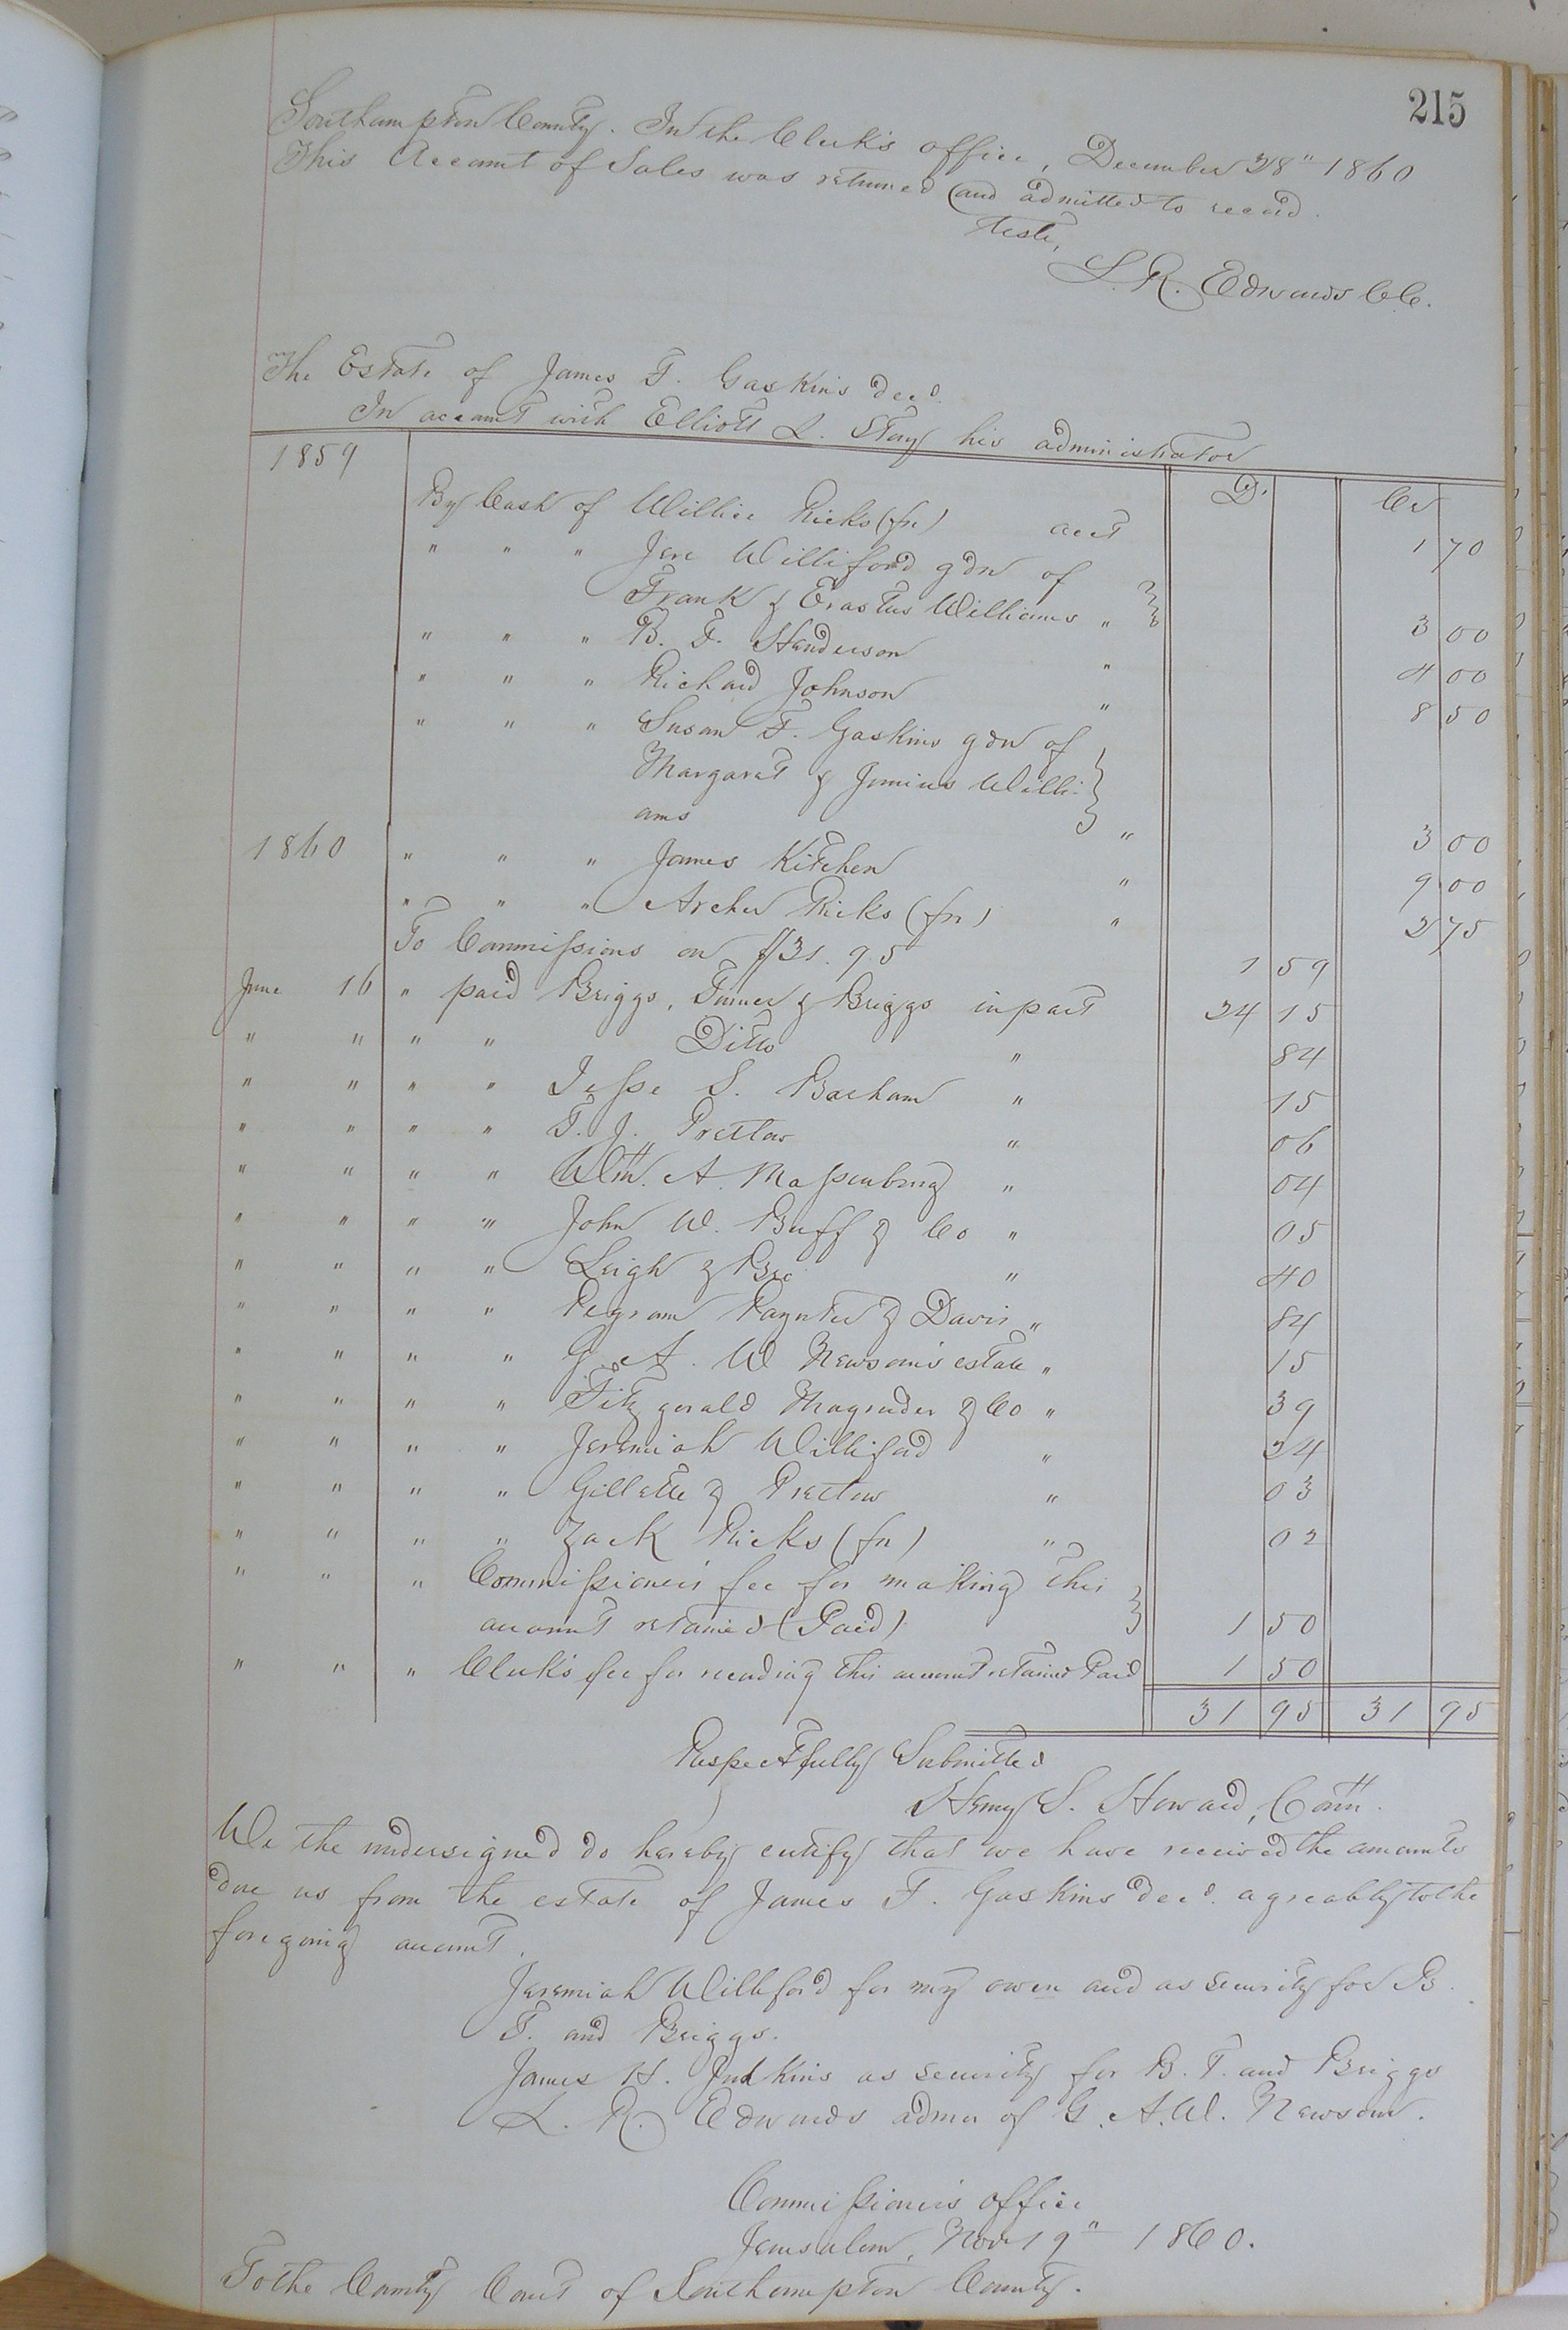 215
Southampton County. In the Clerk's office, December 28" 1860
This Account of Sales was returned and admitted to record.
Teste,
L. R. Edwards CC.
The Estate of James T. Gaskins decd.
In account with Elliott L. Story his administrator
1859 D. Cr
By Cash of Willie Ricks (fn) acct 1 70
" " " Jere Williford gdn of
Frank & Erastus Williams " 3 00
" " " B. F. Handerson " 4 00
" " " Richard Johnson " 8 50
" " " Susan F. Gaskins gdn of
Margaret & Junius Willi-
ams " 3 00
1860 " " " James Kitchen " 9 00
" " " Archer Ricks (fn) " 2 75
To Commissions on $31.95 1 59
June 16 " paid Briggs, Turner & Briggs in part 24 15
" " " " Ditto " 84
" " " " Jesse S. Barham " 15
" " " " T. J. Pretlow " 06
" " " " Wm. A. Massenburg " 04
" " " " John W. Buff & Co " 05
" " " " Leigh & Bro " 40
" " " " Pegram Paynter & Davis " 84
" " " " G. A. W Newsom's estate " 15
" " " " Fitzgerald Magruder & Co " 39
" " " " Jeremiah Williford " 24
" " " " Gillette & Pretlow " 03
" " " " Zack Ricks (fn) " 02
" " " Commissioner's fee for making this
account retained (Paid) 1 50
" " " Clerk's fee for recording this account retained Paid 1 50
31 95 31 95
Respectfully Submitted
Henry S. Howard, Comr.
We the undersigned do hereby certify that we have received the amounts
due us from the estate of James T. Gaskins decd. agreeably to the
foregoing account.
Jeremiah Williford for my own and as security for B.
T. and Briggs.
James H. Judkins as security for B. T. and Briggs
L. R. Edwards admr of G. A. W. Newsom.
Commissioner's office
Jerusalem, Novr 19" 1860.
To the County Court of Southampton County.